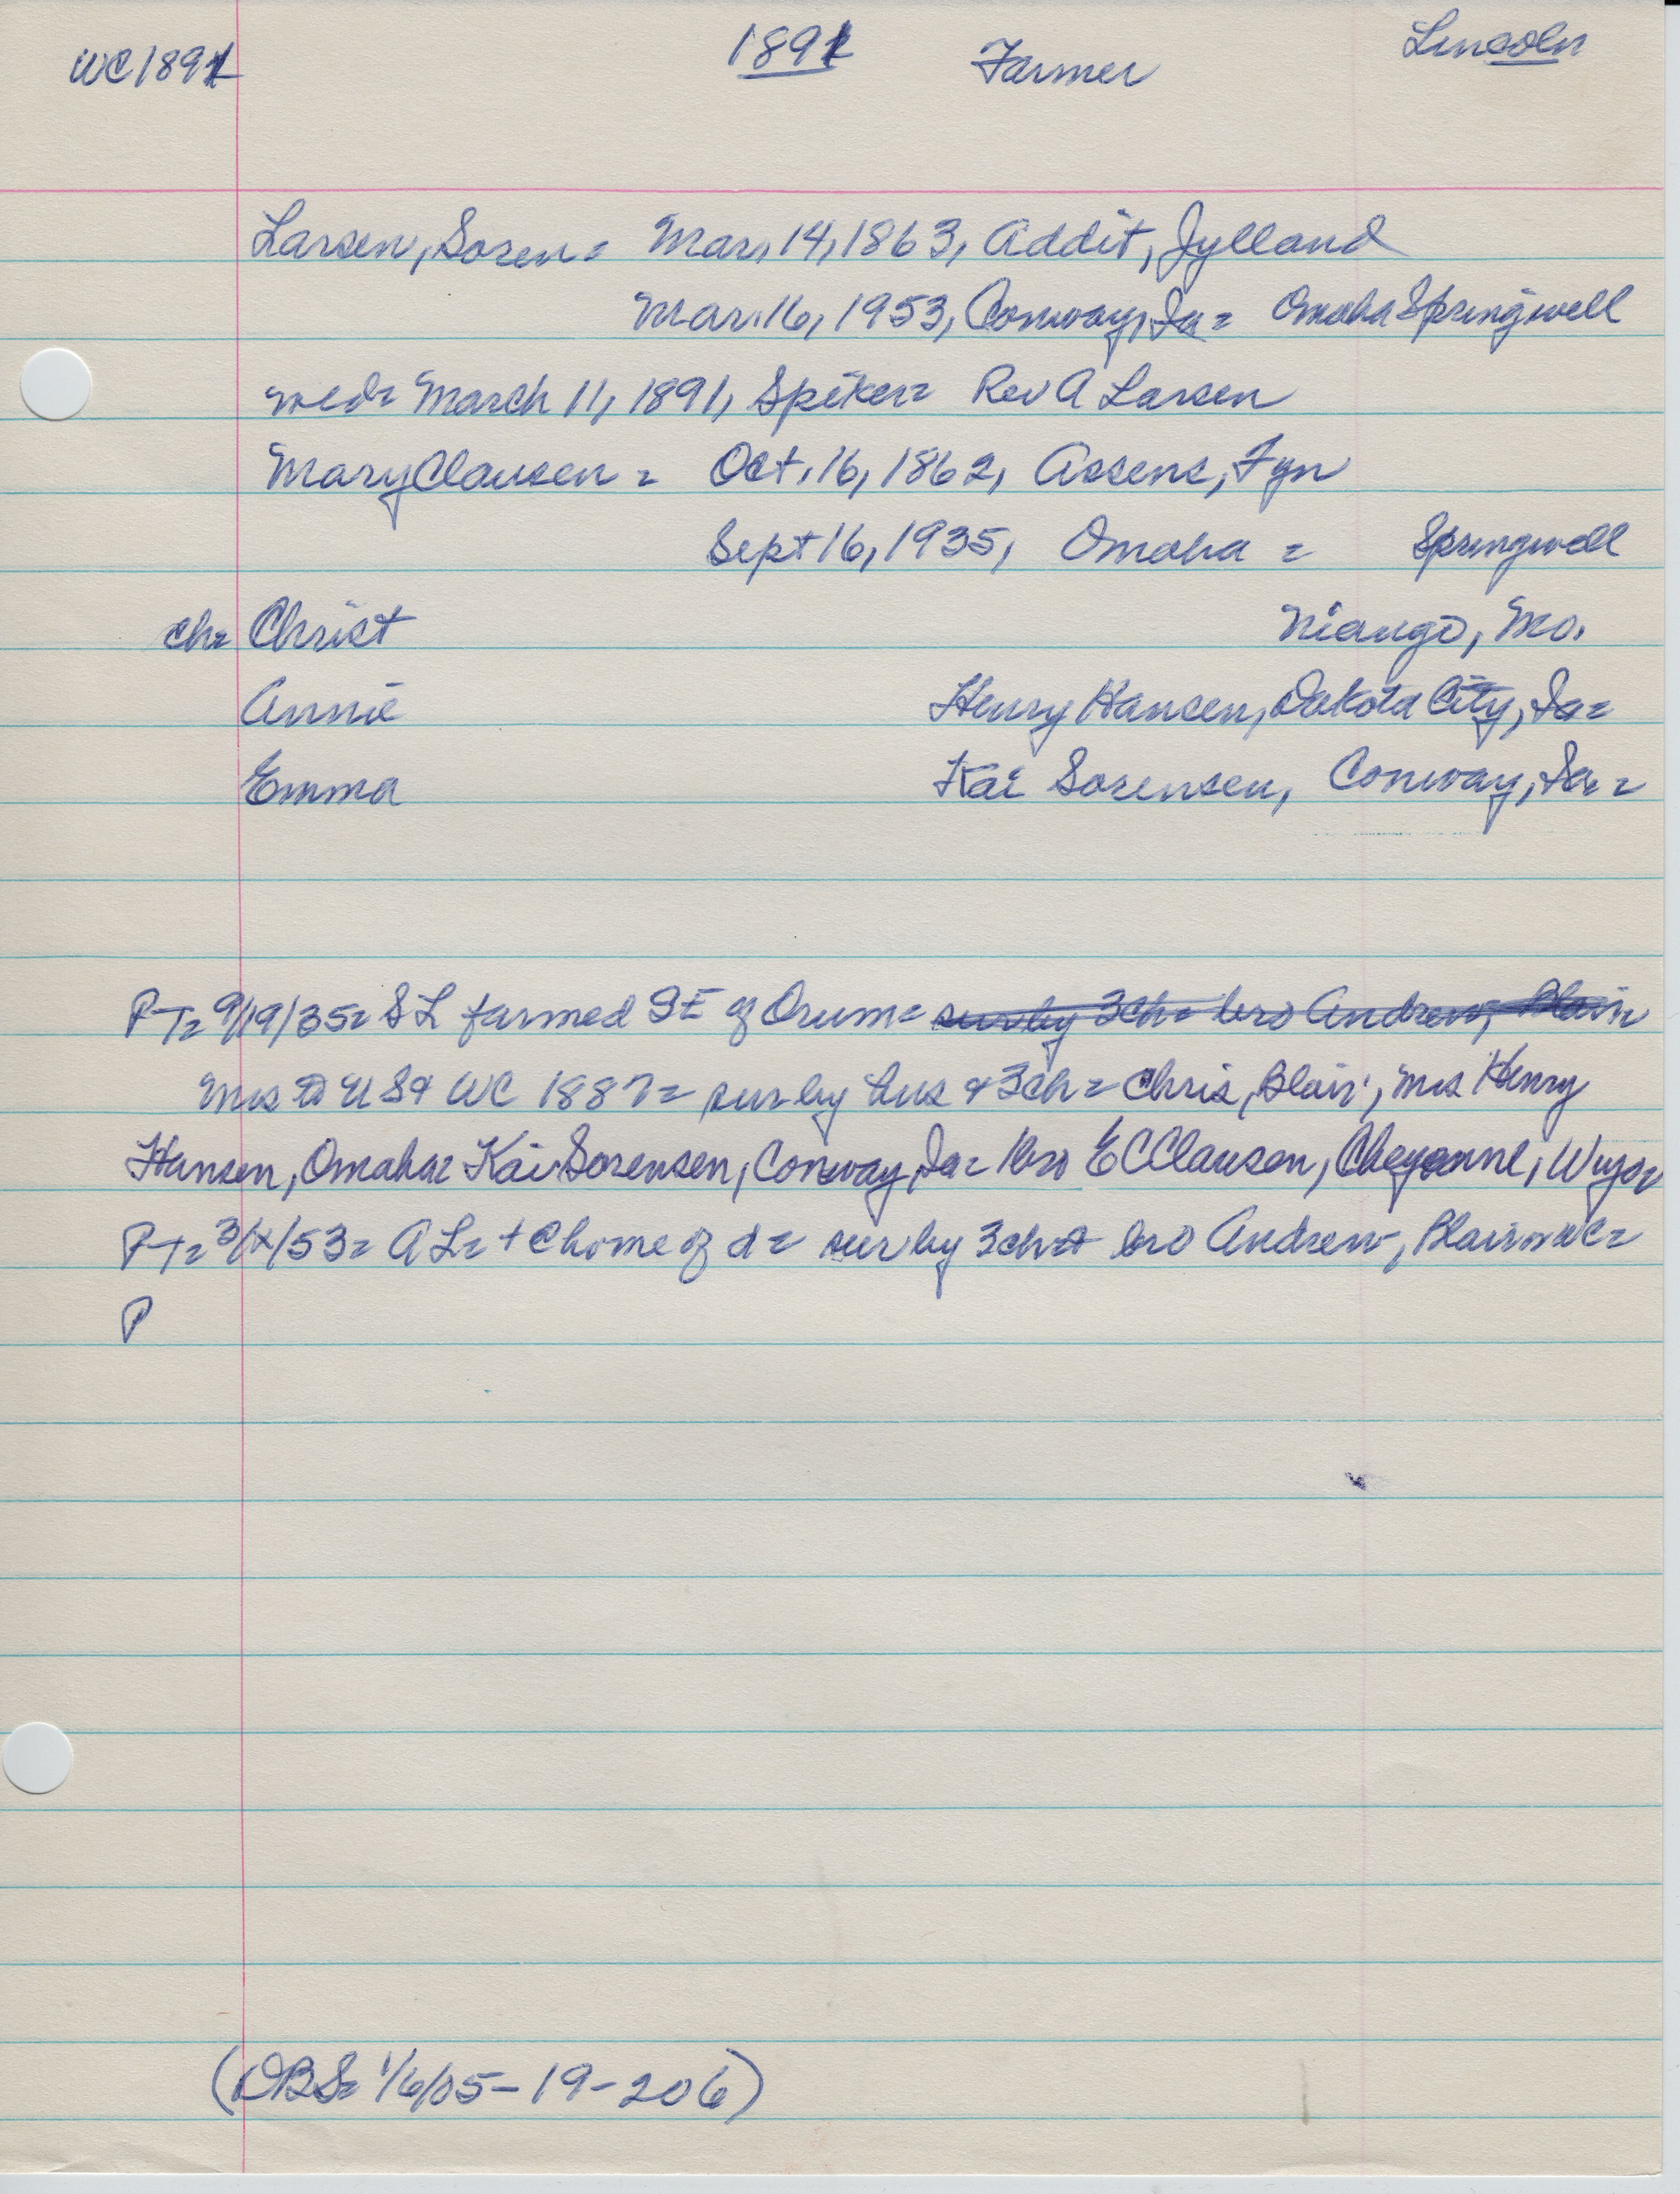 WC 1891 1891 Farmer Lincoln
Larsen, Soren = Mar, 14, 1863, Addit, Jylland
Mar. 16, 1953, Conway, Ia = Omaha Springwell
wed = March 11, 1891, Spiker = Rev A Larsen
Mary Clausen = Oct. 16, 1862, Assens, Fyn
Sept 16, 1935, Omaha = Springwell
ch = Christ Niango, Mo.
Annie Henry Hansen, Dakota City, Ia =
Emma Kai Sorensen, Conway, Ia. =
PT = 9/19/35 = SL farmed SE of Orum = sur by 3ch = bro Andrew, Blair
Mrs to US & WC 1887 = sur by hus & 3ch = Chris, Blair, Mrs Henry
Hansen, Omaha = Kai Sorensen, Conway, Ia = bro E C Clausen, Cheyenne, Wyo =
PT = 3/x/53 = A L = + @ home of d = sur by 3ch & bro Andrew, Blair = WC =
P
(DBS = 1/6/05 - 19 - 206)